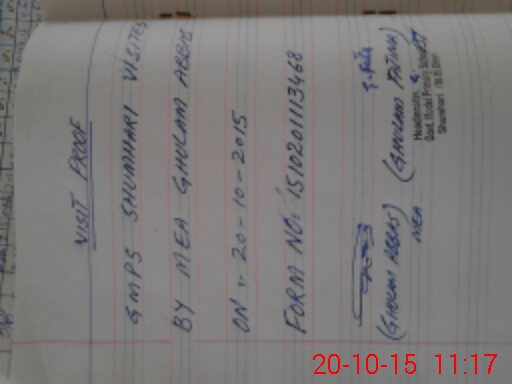 VISIT PROOF
GMPS SHUMHARI VISITED
BY MEA GHULAM ABBAS
ON :- 20-10-2015
FORM NO: 1510201113468
(GHULAM ABBAS) (GHULAM FATIMA)
MEA
Headmistress
Govt. Model Primary School
Shumhari
20-10-15 11:17